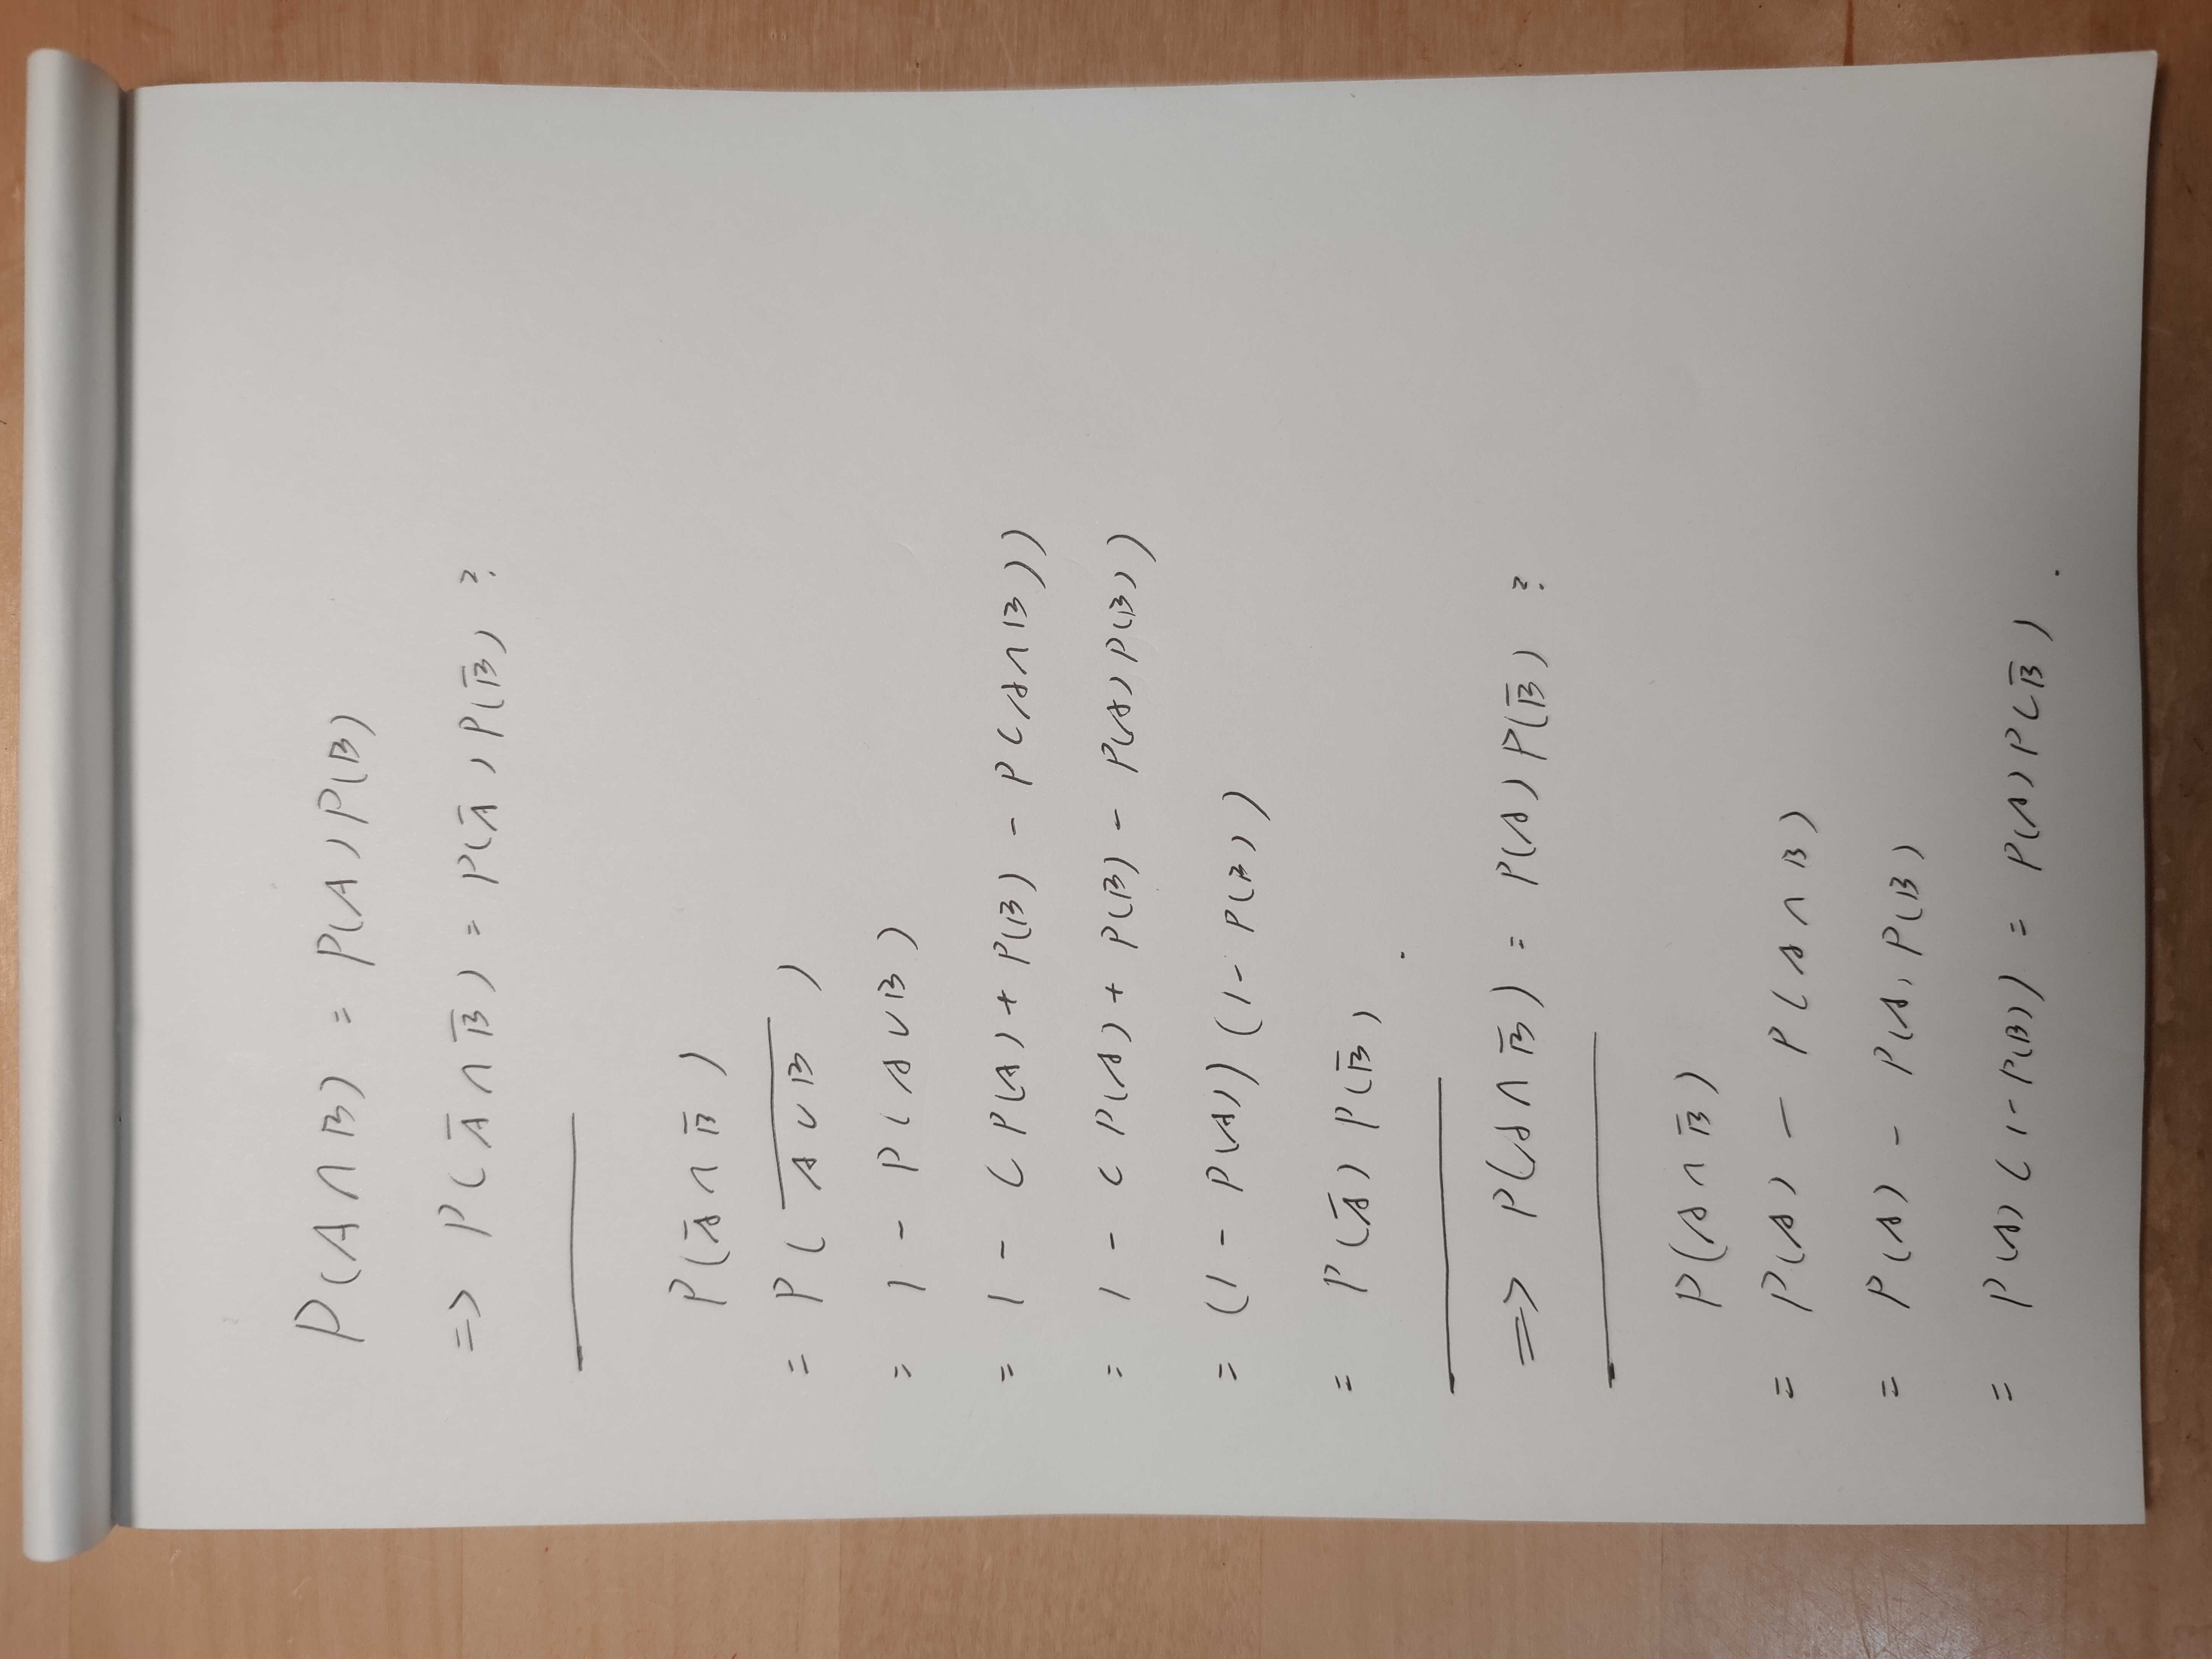 P(A∩B) = P(A)P(B)
=> P(A̅∩B̅) = P(A̅)P(B̅) ?
P(A̅∩B̅)
= P(\overline{A∪B})
= 1 - P(A∪B)
= 1 - (P(A) + P(B) - P(A∩B))
= 1 - (P(A) + P(B) - P(A)P(B))
= (1 - P(A))(1 - P(B))
= P(A̅)P(B̅).
=> P(A∩B̅) = P(A)P(B̅) ?
P(A∩B̅)
= P(A) - P(A∩B)
= P(A) - P(A)P(B)
= P(A)(1-P(B)) = P(A)P(B̅).